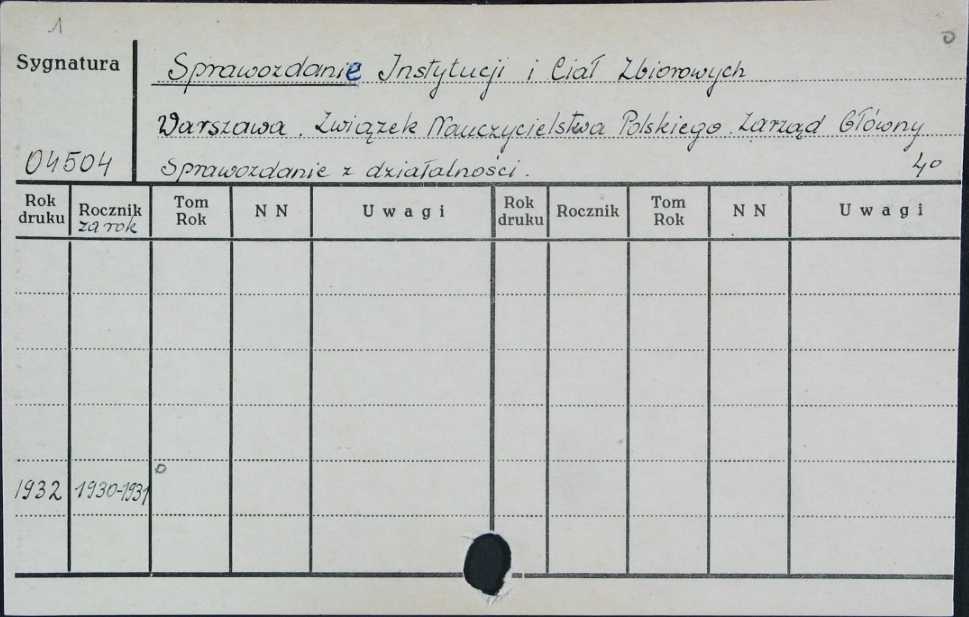 1
0
Sygnatura Sprawozdanie Instytucji i Ciał Zbiorowych
Warszawa. Związek Nauczycielstwa Polskiego. Zarząd Główny
04504 Sprawozdanie z działalności. 4o
Rok druku Rocznik za rok Tom Rok N N Uwagi Rok druku Rocznik Tom Rok N N Uwagi
o
1932 1930-1931